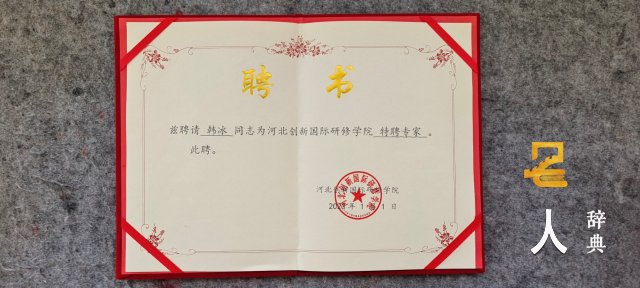 聘 书
兹聘请 韩冰 同志为河北创新国际研修学院 特聘专家 。
此聘。
河北创新国际研修学院
2023年1月1日
名人
辞典